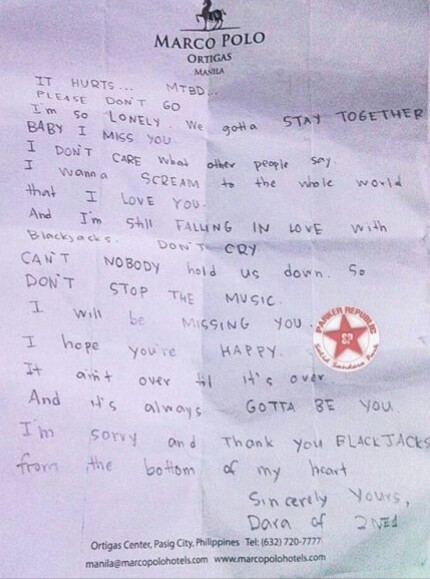 MARCO POLO
ORTIGAS
MANILA
IT HURTS... MTBD...
PLEASE DON'T GO
I'm so LONELY. We gotta STAY TOGETHER
BABY I MISS YOU
I DON'T CARE what other people say.
I wanna SCREAM to the whole world
that I LOVE YOU.
And I'm still FALLING IN LOVE with
Blackjacks. DON'T CRY
CAN'T NOBODY hold us down. So
DON'T STOP THE MUSIC.
I will be MISSING YOU.
PARKER REPUBLIC
Solid Sandara Park
I hope you're HAPPY.
It ain't over til it's over
And it's always GOTTA BE YOU
I'm sorry and Thank you BLACKJACKS
from the bottom of my heart
Sincerely Yours,
Dara of 2NE1
Ortigas Center, Pasig City, Philippines Tel: (632) 720-7777
manila@marcopolohotels.com www.marcopolohotels.com